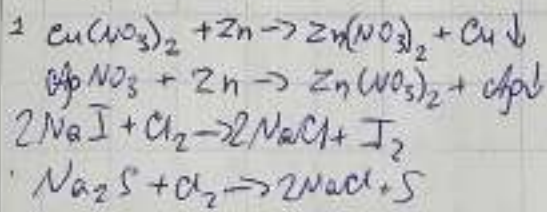 1 Cu(NO3)2 + Zn -> Zn(NO3)2 + Cu↓
AgNO3 + Zn -> Zn(NO3)2 + Ag↓
2NaI + Cl2 -> 2NaCl + I2
Na2S + Cl2 -> 2NaCl + S